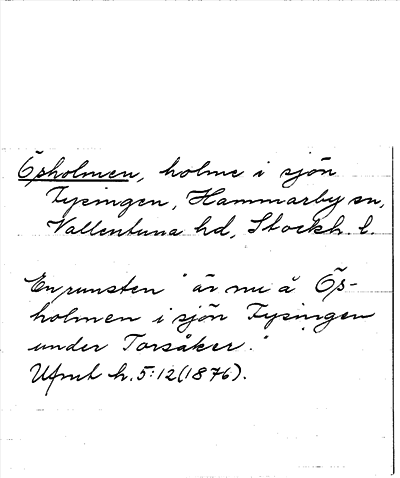 Ösholmen, holme i sjön
Fysingen, Hammarby sn,
Vallentuna hd, Stockh. l.
En runsten "är nu å Ös-
holmen i sjön Fysingen
under Torsåker."
Ufmt h. 5:12 (1876).